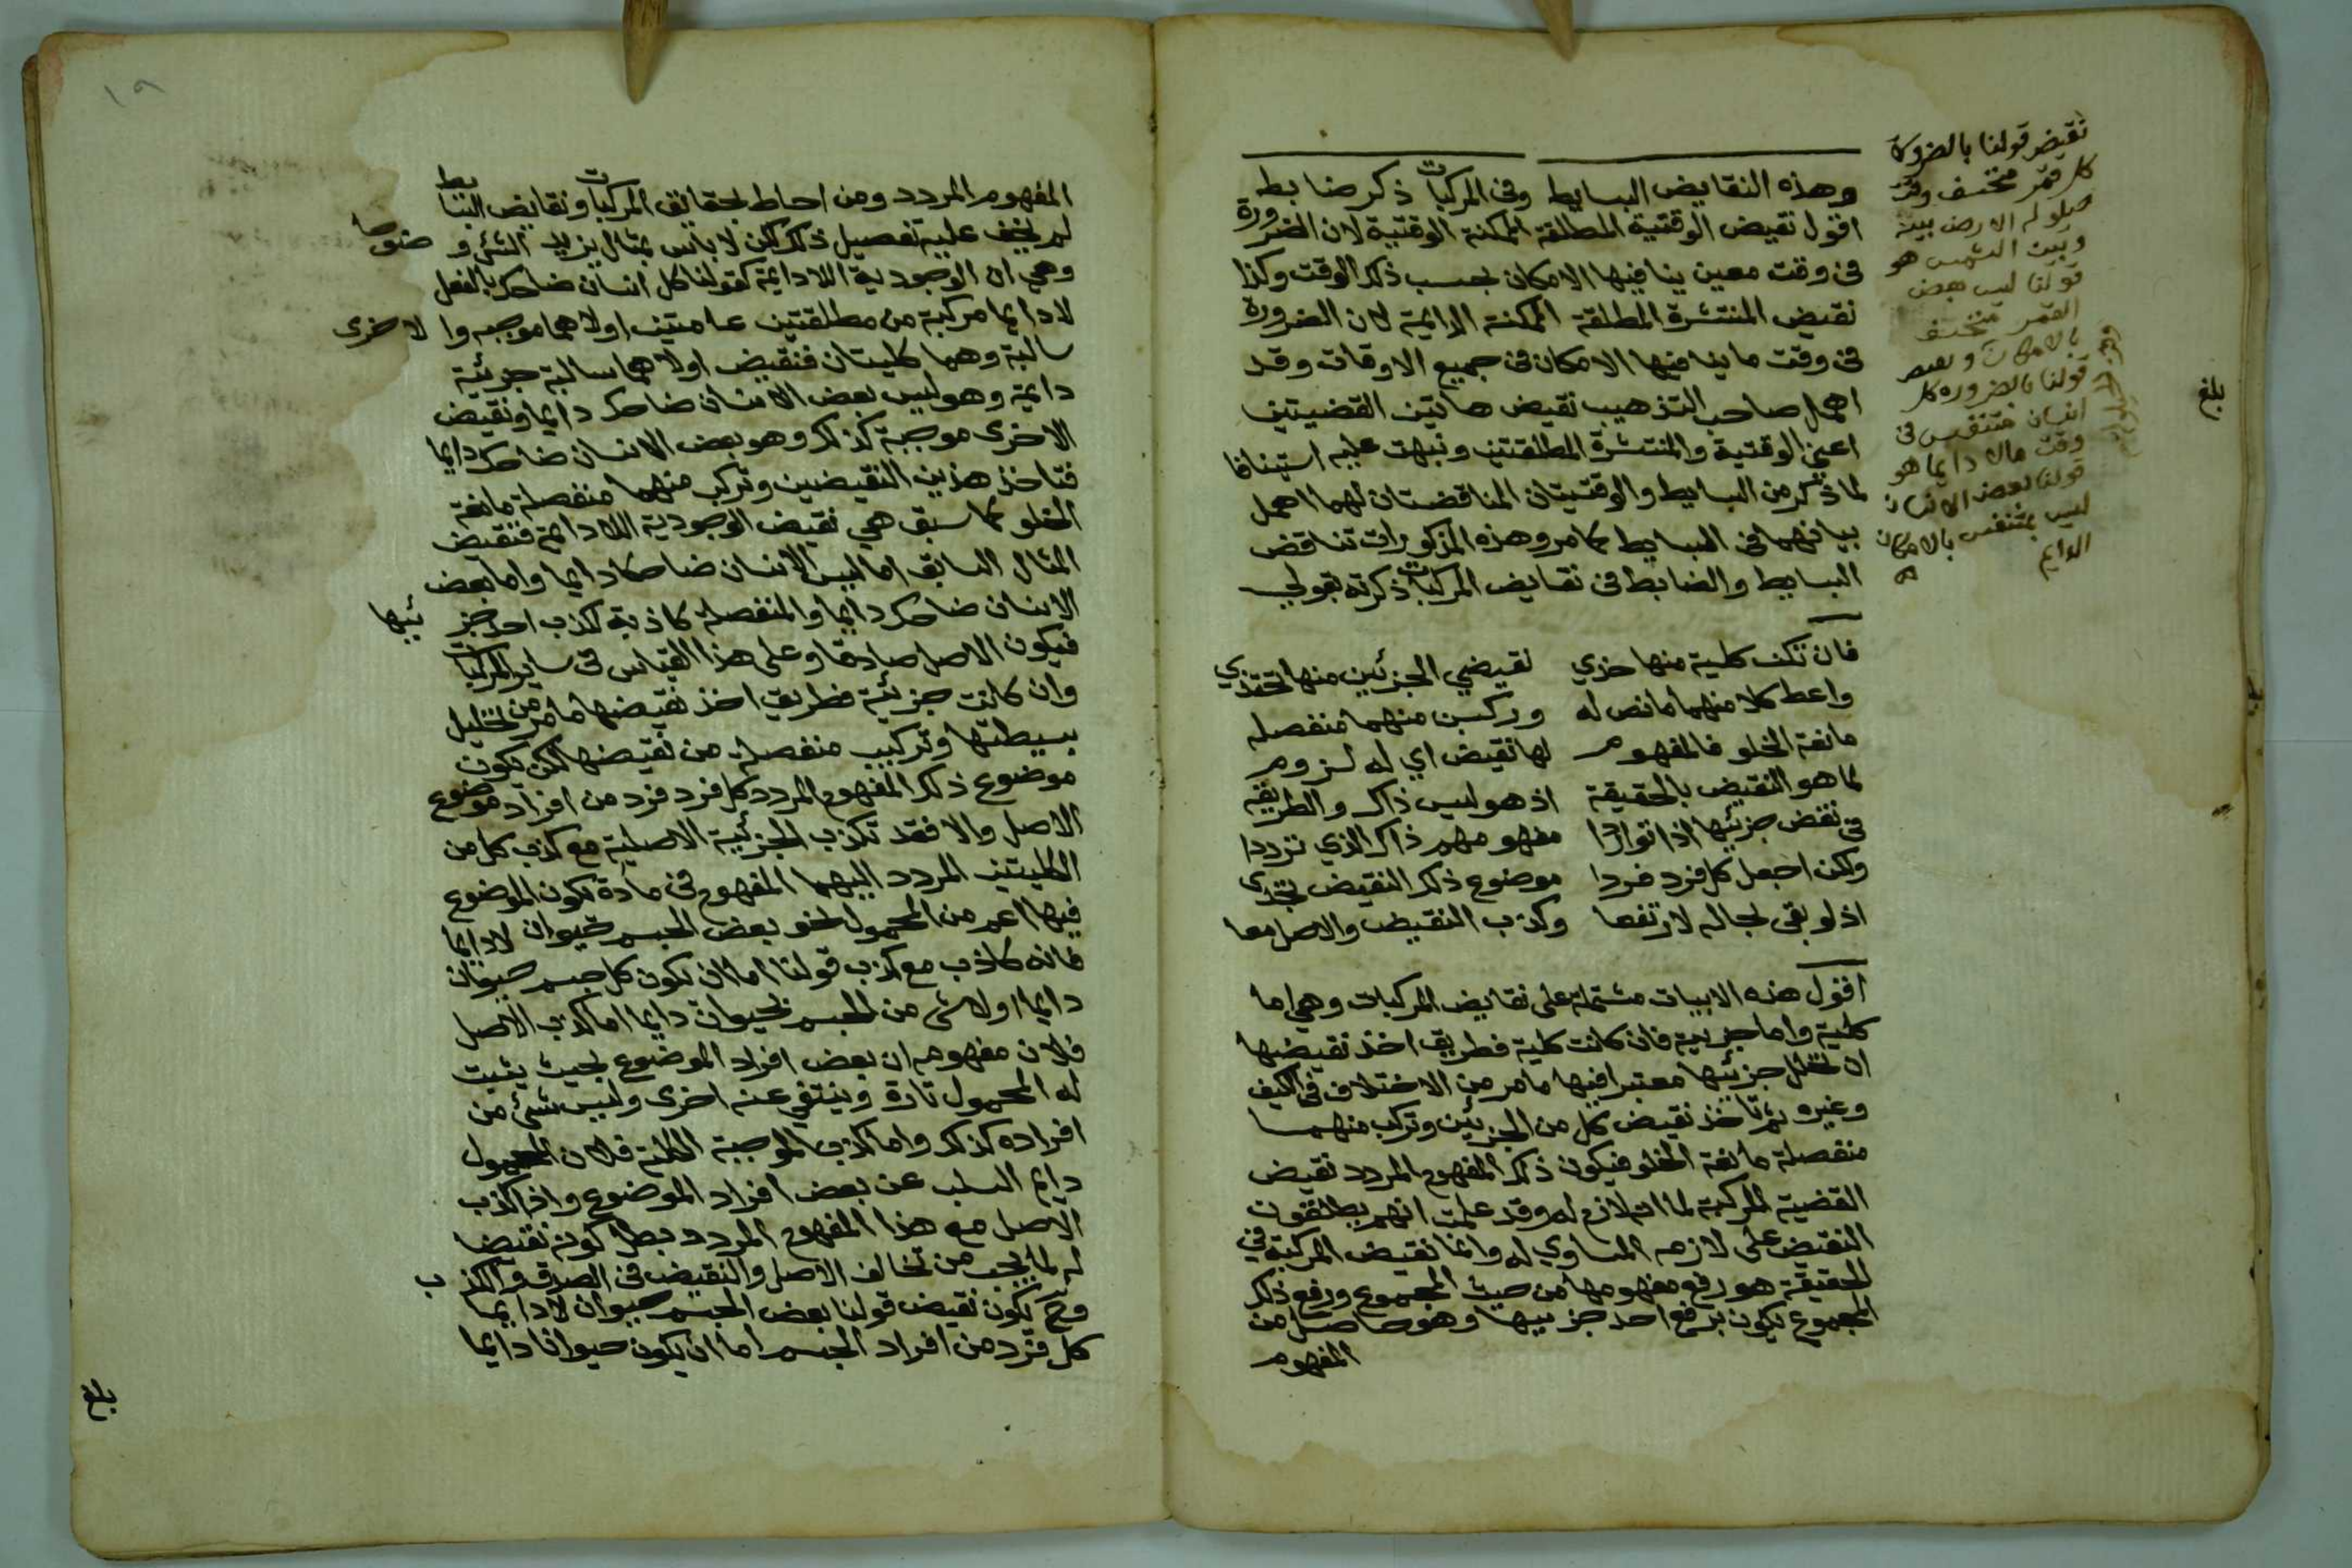 وهذه النقايض البسايط وفى المركبات ذكر ضابطه
اقول نقيض الوقتية المطلقة الممكنة الوقتية لان الضرورة
فى وقت معين ينافيها الامكان بحسب ذلك الوقت وكذا
نقيض المنتشرة المطلقة الممكنة الدايمة لان الضرورة
فى وقت ما ينافيها الامكان فى جميع الاوقات وقد
اهمل صاحب التذهيب نقيض هاتين القضيتين
اعني الوقتية والمنتشرة المطلقتين ونبهت عليه استينافا
لما ذكر من البسايط والوقتيتان المناقضتان لهما اهمل
بيانهما فى البسايط كما مر وهذه المذكورات تناقض
البسايط والضابط فى نقايض المركبات ذكرته بقولي
فان تكن كلية منها خذي نقيضي الجزئين منها تحتذي
واعط كلا منهما ما نص له وركبن منهما منفصله
مانعة الخلو فالمفهوم لها نقيض اي له لزوم
لما هو النقيض بالحقيقة اذ هو ليس ذاك والطريقه
فى نقض جزئيها اذا توارد مفهومهم ذاك الذي ترددا
ولكن اجعل كل فرد فردا موضوع ذلك النقيض تجدى
اذ لو بقى بحاله لارتفعا وكذب النقيض والاصل معا
اقول هذه الابيات مشتملة على نقايض المركبات وهي اما
كلية واما جزيية فان كانت كلية فطريق اخذ نقيضها
ان تحلل جزئيها معتبرا فيها ما مر من الاختلاف فى الكيف
وغيره ثم تاخذ نقيض كل من الجزئين وتركب منهما
منفصلة مانعة الخلو فيكون ذلك المفهوم المردد نقيض
القضية المركبة لما انه لازم له وقد علمت انهم يطلقون
النقيض على لازمه المساوي له وانما نقيض المركبة في
الحقيقة هو رفع مفهومها من حيث المجموع ورفع ذلك
المجموع يكون برفع احد جزييها وهو حاصل من
المفهوم
نقيض قولنا بالضرورة
كل قمر منخسف وقت
حيلولة الارض بينه
وبين الشمس هو
قولنا ليس بعض
القمر منخسف
بالامكان ونقيض
قولنا بالضروره كل
انسان متنفس فى
وقت ما لا دايما هو
قولنا بعض الانسان
ليس بمتنفس بالامكان
الدايم
بلغ
المفهوم المردد ومن احاط بحقايق المركبات ونقايض البسايط
لم يخف عليه تفصيل ذلك لكن لا باس بمثال يزيد الشئ وضوحا
وهي ان الوجودية اللادايمة كقولنا كل انسان ضاحك بالفعل
لا دايما مركبة من مطلقتين عامتين اولاهما موجبه والاخرى
سالبة وهما كليتان فنقيض اولاهما سالبة جزئية
دايمة وهو ليس بعض الانسان ضاحك دايما ونقيض
الاخرى موجبة كذلك وهو بعض الانسان ضاحك دايما
فتاخذ هذين النقيضين وتركب منهما منفصلة مانعة
الخلو كما سبق هي نقيض الوجودية اللادايمة فنقيض
المثال السابق اما ليس الانسان ضاحكا دايما واما بعض
الانسان ضاحك دايما والمنفصلة كاذبة لكذب احد جزئيها
فيكون الاصل صادقا وعلى هذا القياس فى ساير المركبات
وان كانت جزئية فطريق اخذ نقيضها ما مر من تحليل
بسيطتها وتركيب منفصلة من نقيضها لكن يكون
موضوع ذلك المفهوم المردد كل فرد فرد من افراد موضوع
الاصل والا فقد تكذب الجزئية الاصلية مع كذب كل من
الكليتين المردد اليهما المفهوم فى مادة يكون الموضوع
فيها اعم من المحمول نحو بعض الجسم حيوان لا دايما
فانه كاذب مع كذب قولنا اما ان يكون كل جسم حيوان
دايما او لا شئ من الجسم بحيوان دايما اما كذب الاصل
فلان مفهومه ان بعض افراد الموضوع بحيث يثبت
له المحمول تارة وينتفي عنه اخرى وليس شئ من
افراده كذلك واما كذب الموجبة الكلية فلان المحمول
دايم السلب عن بعض افراد الموضوع واذا كذب
الاصل مع هذا المفهوم المردد بطل كونه نقيضا
له لما يجب من تخالف الاصل والنقيض فى الصدق والكذب
وح يكون نقيض قولنا بعض الجسم حيوان لا دايما
كل فرد من افراد الجسم اما ان يكون حيوانا دايما
بلغ